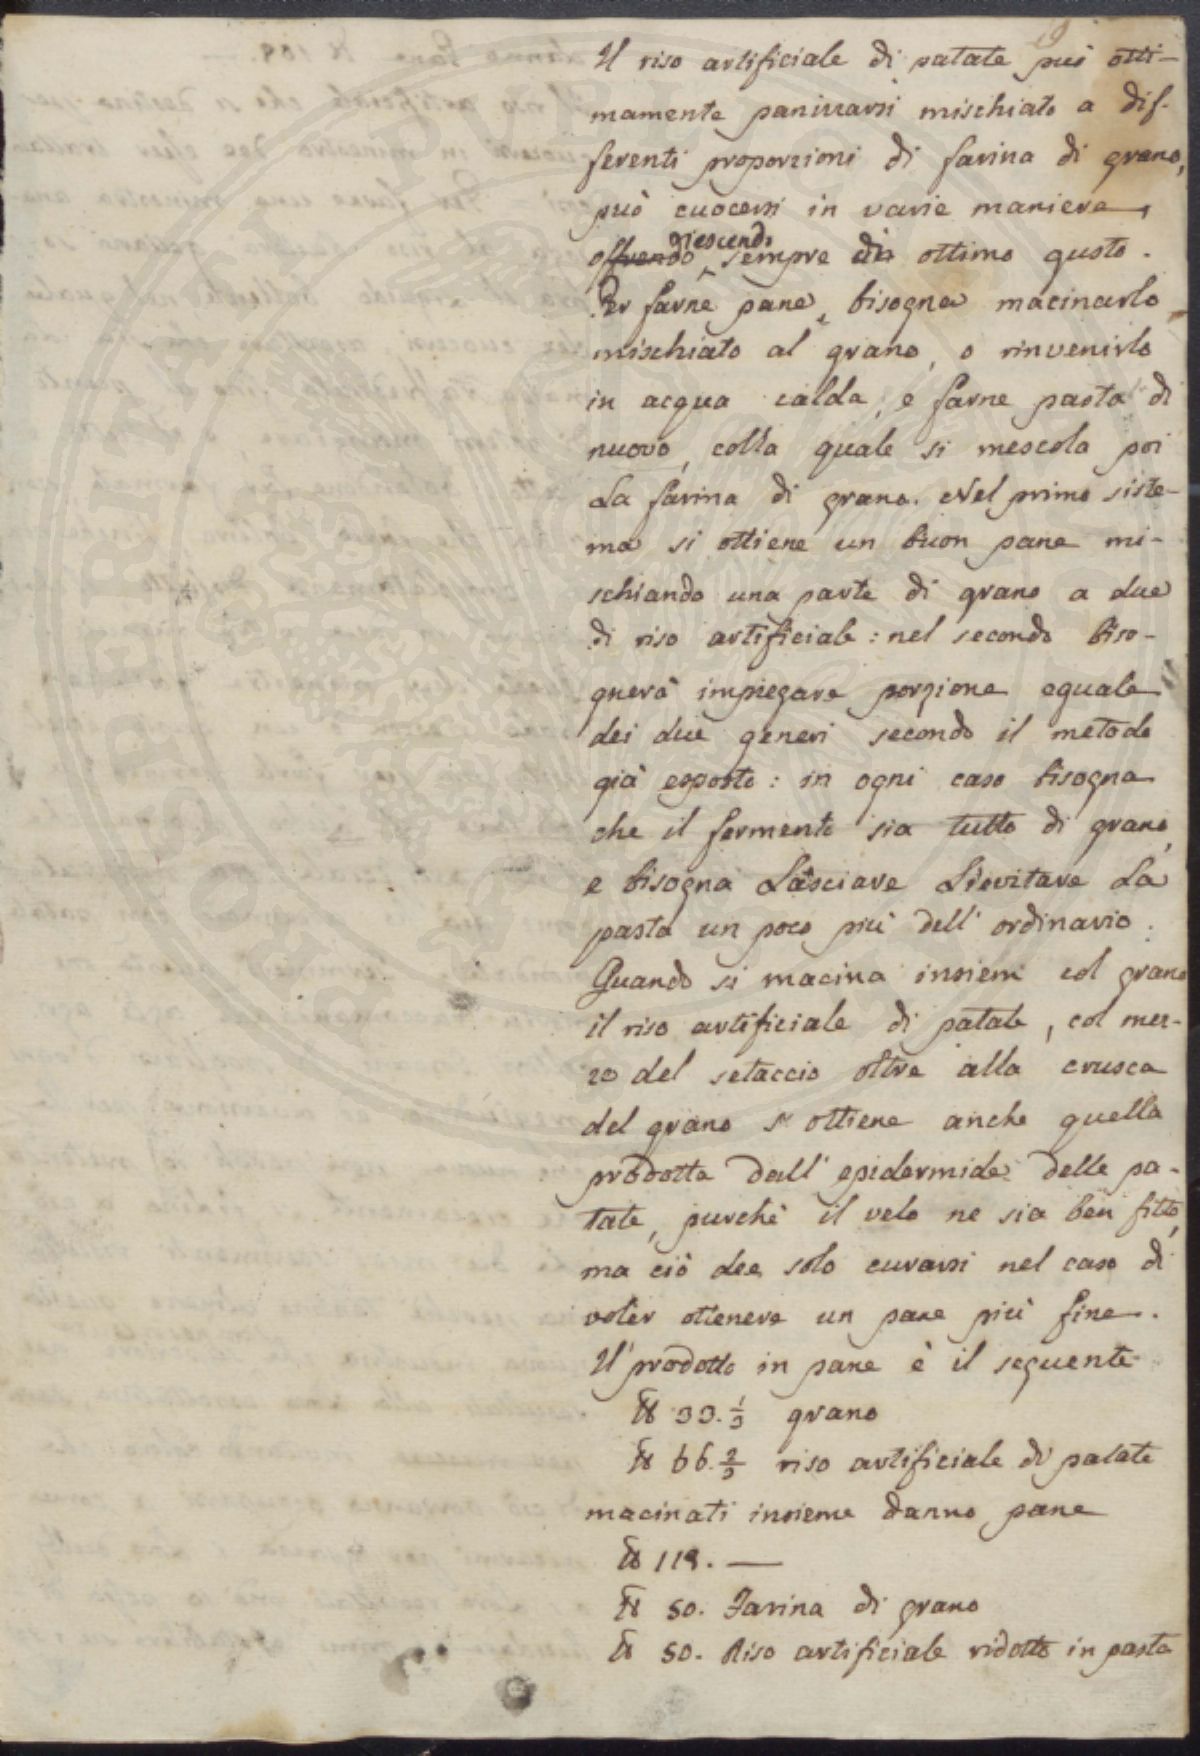 Il riso artificiale di patate può otti-
mamente panizzarsi mischiato a dif-
ferenti proporzioni di farina di grano,
può cuocersi in varie maniere,
offrendo riescendo sempre di ottimo gusto.
Per farne pane, bisogna macinarlo
mischiato al grano, o rinvenirlo
in acqua calda, e farne pasta di
nuovo, colla quale si mescola poi
La farina di grano. Nel primo siste-
ma si ottiene un buon pane mi-
schiando una parte di grano a due
di riso artificiale: nel secondo biso-
gnerà impiegare porzione eguale
dei due generi secondo il metodo
già esposto: in ogni caso bisogna
che il fermento sia tutto di grano,
e bisogna Lasciare Lievitare La
pasta un poco più dell'ordinario.
Quando si macina insiem col grano
il riso artificiale di patate, col mez-
zo del setaccio oltre alla crusca
del grano si ottiene anche quella
prodotta dall'epidermide delle pa-
tate, purchè il velo ne sia ben fitto,
ma ciò dee solo curarsi nel caso di
voler ottenere un pane più fine.
Il prodotto in pane è il seguente
℔ 33. 1/3 grano
℔ 66. 2/3 riso artificiale di patate
macinati insieme danno pane
℔ 118. —
℔ 50. Farina di grano
℔ 50. Riso artificiale ridotto in pasta